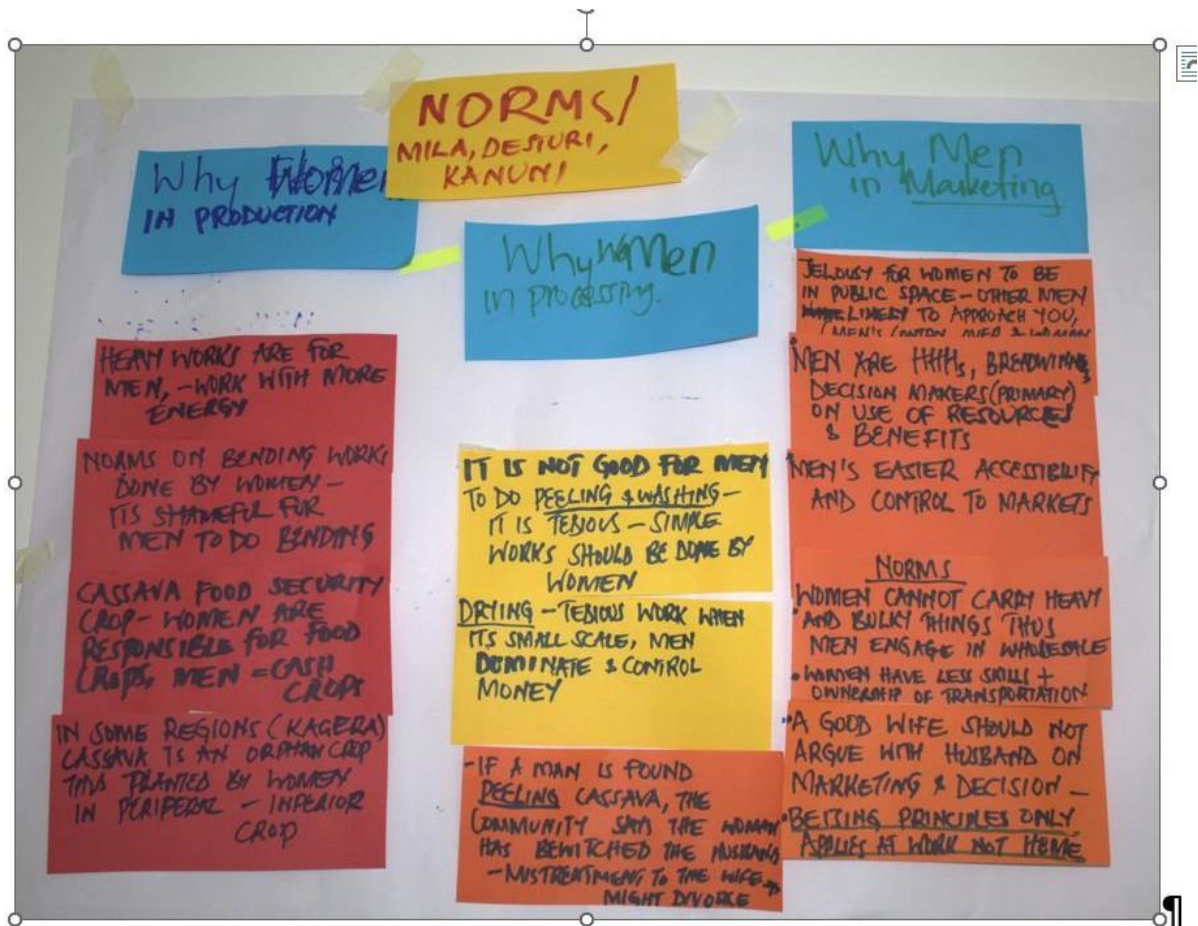 NORMS/
MILA, DESTURI,
KANUNI
Why Women
IN PRODUCTION
HEAVY WORKS ARE FOR
MEN, - WORK WITH MORE
ENERGY
NORMS ON BENDING WORKS
DONE BY WOMEN -
ITS SHAMEFUL FOR
MEN TO DO BENDING
CASSAVA FOOD SECURITY
CROP - WOMEN ARE
RESPONSIBLE FOR FOOD
CROPS, MEN = CASH
CROPS
IN SOME REGIONS (KAGERA)
CASSAVA IS AN ORPHAN CROP
THUS PLANTED BY WOMEN
IN PERIPERAL - INFERIOR
CROP
Why Women
in processing.
IT IS NOT GOOD FOR MEN
TO DO PEELING & WASHING -
IT IS TEDIOUS - SIMPLE
WORKS SHOULD BE DONE BY
WOMEN
DRYING - TEDIOUS WORK WHEN
ITS SMALL SCALE, MEN
DOMINATE & CONTROL
MONEY
- IF A MAN IS FOUND
PEELING CASSAVA, THE
COMMUNITY SAYS THE WOMAN
HAS BEWITCHED THE HUSBAND
- MISTREATMENT TO THE WIFE
MIGHT DIVORCE
Why Men
in Marketing
JELOUSY FOR WOMEN TO BE
IN PUBLIC SPACE - OTHER MEN
LIKELY TO APPROACH YOU,
MEN'S OVER & WOMAN
• MEN ARE HHHs, BREADWINNE
DECISION MAKERS (PRIMARY)
ON USE OF RESOURCES
& BENEFITS
MEN'S EASIER ACCESSIBILITY
AND CONTROL TO MARKETS
NORMS
WOMEN CANNOT CARRY HEAVY
• AND BULKY THINGS THUS
MEN ENGAGE IN WHOLESALE
• WOMEN HAVE LESS SKILLS +
OWNERSHIP OF TRANSPORTATION
• A GOOD WIFE SHOULD NOT
ARGUE WITH HUSBAND ON
MARKETING & DECISION -
• PRINCIPLES ONLY
APPLIES AT WORK NOT HOME
¶